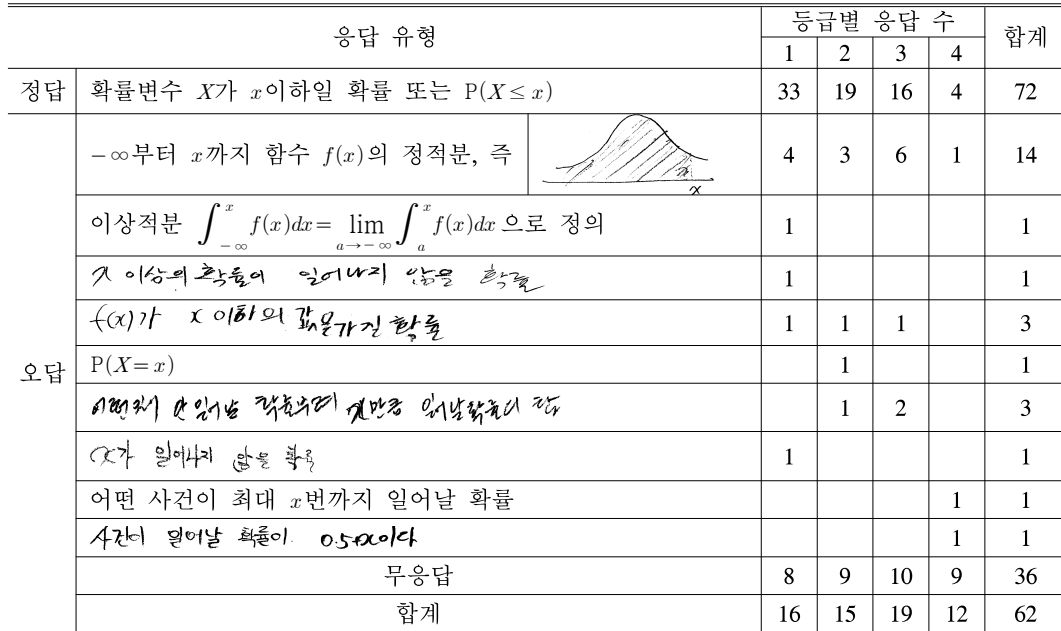 응답 유형 등급별 응답 수 합계
1 2 3 4
정답 확률변수 X가 x이하일 확률 또는 P(X≤x) 33 19 16 4 72
오답
−∞부터 x까지 함수 f(x)의 정적분, 즉 x 4 3 6 1 14
이상적분 ∫_{−∞}^{x} f(x)dx = lim_{a→−∞} ∫_{a}^{x} f(x)dx 으로 정의 1 1
x 이상의 확률이 일어나지 않을 확률 1 1
f(x)가 x 이하의 값을 가질 확률 1 1 1 3
P(X=x) 1 1
안 일어날 일어날 1 2 3
x가 일어나지 않을 확률 1 1
어떤 사건이 최대 x번까지 일어날 확률 1 1
사건이 일어날 확률이 0.5+x이다 1 1
무응답 8 9 10 9 36
합계 16 15 19 12 62